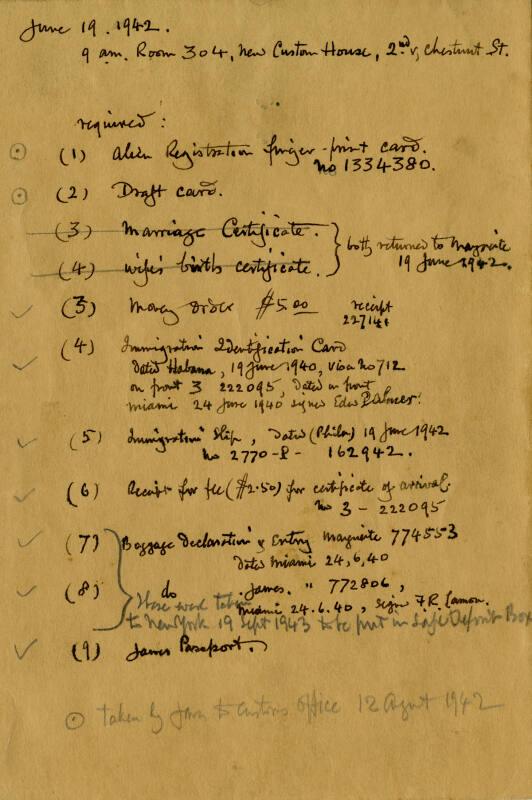 June 19. 1942.
9 am. Room 304, New Custom House, 2nd & Chestnut St.
required:
(1) Alien Registration finger-print card.
No 1334380.
(2) Draft card.
(3) Marriage Certificate.
(4) wife's birth certificate.
both returned to Marguerite
19 June 1942.
(3) Money Order $5.00 receipt
(4) Immigration Identification Card
Dated Habana, 19 June 1940, visa No 712
on front 3 222095, Dated in front
Miami 24 June 1940 signed
(5) Immigration Slip, Dated (Phila) 19 June 1942
No 2770-P- 162942.
(6) Receipt for fee ($2.50) for certificate of arrival.
No 3 - 222095
(7) Baggage Declaration & Entry Marguerite 774553
Dated Miami 24,6,40
(8) do James. " 772806,
Miami 24.6.40, sign F.R. Lamon.
These were taken
to New York 19 Sept 1943 to be put in Safe Deposit Box
(9) James Passport.
⊙ taken by James to Customs Office 12 August 1942